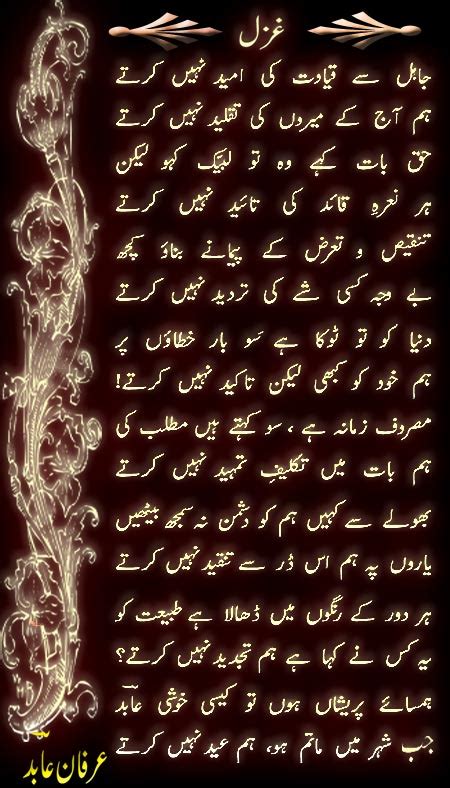 غزل
جاہل سے قیادت کی امید نہیں کرتے
ہم آج کے میروں کی تقلید نہیں کرتے
حق بات کہے وہ تو لبیّک کہو لیکن
ہر نعرہِ قائد کی تائید نہیں کرتے
تنقیص و تعرض کے پیمانے بناؤ کچھ
بے وجہ کسی شے کی تردید نہیں کرتے
دنیا کو تو ٹوکا ہے سَو بار خطاؤں پر
ہم خود کو کبھی لیکن تاکید نہیں کرتے!
مصروف زمانہ ہے ، سو کہتے ہیں مطلب کی
ہم بات میں تکلیفِ تمہید نہیں کرتے
بھولے سے کہیں ہم کو دشمن نہ سمجھ بیٹھیں
یاروں پہ ہم اس ڈر سے تنقید نہیں کرتے
ہر دور کے رنگوں میں ڈھالا ہے طبیعت کو
یہ کس نے کہا ہے ہم تجدید نہیں کرتے؟
ہمسائے پریشاں ہوں تو کیسی خوشی عابدؔ
جب شہر میں ماتم ہو، ہم عید نہیں کرتے
عرفان عابدؔ